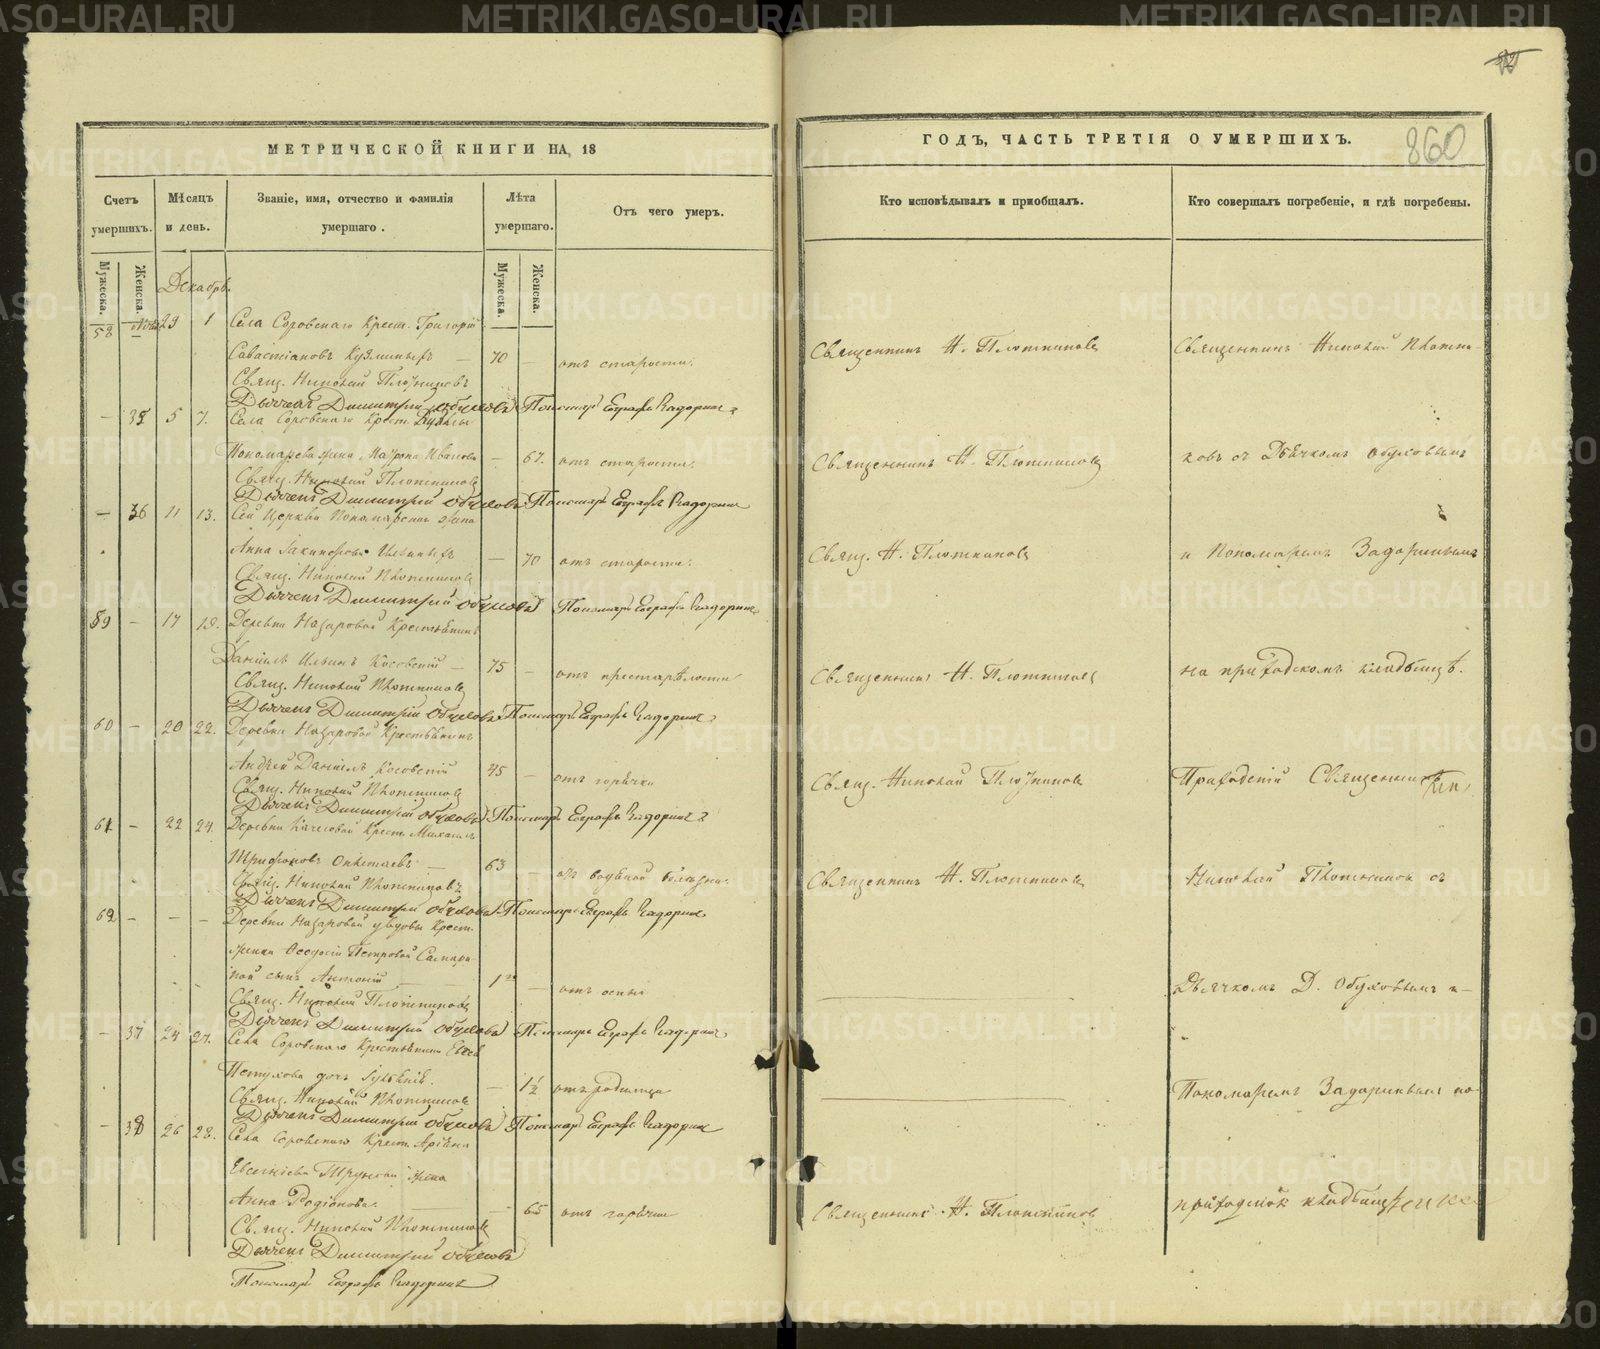 МЕТРИЧЕСКОЙ КНИГИ НА 18
Счетъ умершихъ.
Мѣсяцъ и день.
Званіе, имя, отчество и фамилія умершаго.
Лѣта умершаго.
Отъ чего умеръ.
Мужеска.
Женска.
Мужеска.
Женска.
Декабрь.
58 — 29 1 Села Соровскаго Крест. Григорій
Савастіановъ — 70 — отъ старости.
Свящ. Николай Плотниковъ
Дьячекъ Димитрій Обуховъ Пономарь Евграфъ Задоринъ
— 35 5 7. Села Соровскаго Крест.
Пономарева жена Иванова — 67. отъ старости.
Свящ. Николай Плотниковъ
Дьячекъ Димитрій Обуховъ Пономарь Евграфъ Задоринъ
— 36 11 13. Сей Церкви Пономарская жена
Анна — 70 отъ старости.
Свящ. Николай Плотниковъ
Дьячекъ Димитрій Обуховъ Пономарь Евграфъ Задоринъ
59 — 17 19. Деревни Назаровой Крестьянинъ
Даніилъ Ильинъ Косовскій — 75 — отъ престарѣлости
Свящ. Николай Плотниковъ
Дьячекъ Димитрій Обуховъ Пономарь Евграфъ Задоринъ
60 — 20 22. Деревни Назаровой Крестьянинъ
Андрей Даніилъ Косовскій 45 — отъ горячки
Свящ. Николай Плотниковъ
Дьячекъ Димитрій Обуховъ Пономарь Евграфъ Задоринъ
61 — 22 24. Деревни Крест. Михаилъ
Трифоновъ — 63 — отъ водяной болѣзни.
Свящ. Николай Плотниковъ
Дьячекъ Димитрій Обуховъ Пономарь Евграфъ Задоринъ
62 — — — Деревни Назаровой у вдовы Крест.
жены Ѳеодосіи Петровой
сынъ Антоній — 1 — отъ оспы
Свящ. Николай Плотниковъ
Дьячекъ Димитрій Обуховъ Пономарь Евграфъ Задоринъ
— 37 24 27. Села Соровскаго Крестьянина
Петухова дочь — 1½ отъ родимца
Свящ. Николай Плотниковъ
Дьячекъ Димитрій Обуховъ Пономарь Евграфъ Задоринъ
— 38 26 28. Села Соровскаго Крест.
Евсегніева жена
Анна Родіонова. — 65 отъ горячки
Свящ. Николай Плотниковъ
Дьячекъ Димитрій Обуховъ
Пономарь Евграфъ Задоринъ
860
ГОДЪ, ЧАСТЬ ТРЕТІЯ О УМЕРШИХЪ.
Кто исповѣдывалъ и пріобщалъ.
Кто совершалъ погребеніе, и гдѣ погребены.
Священникъ Н. Плотниковъ
Священникъ Николай Плотни-
Священникъ Н. Плотниковъ
ковъ съ Дьячкомъ Обуховымъ
Свящ. Н. Плотниковъ
и Пономаремъ Задоринымъ
Священникъ Н. Плотниковъ
на приходскомъ кладбищѣ.
Свящ. Николай Плотниковъ
Приходскій Священникъ
Священникъ Н. Плотниковъ
Николай Плотников с
Дьячкомъ Д. Обуховымъ и
Пономаремъ Задоринымъ на
Священникъ Н. Плотников
приходском кладбищѣ
METRIKI.GASO-URAL.RU